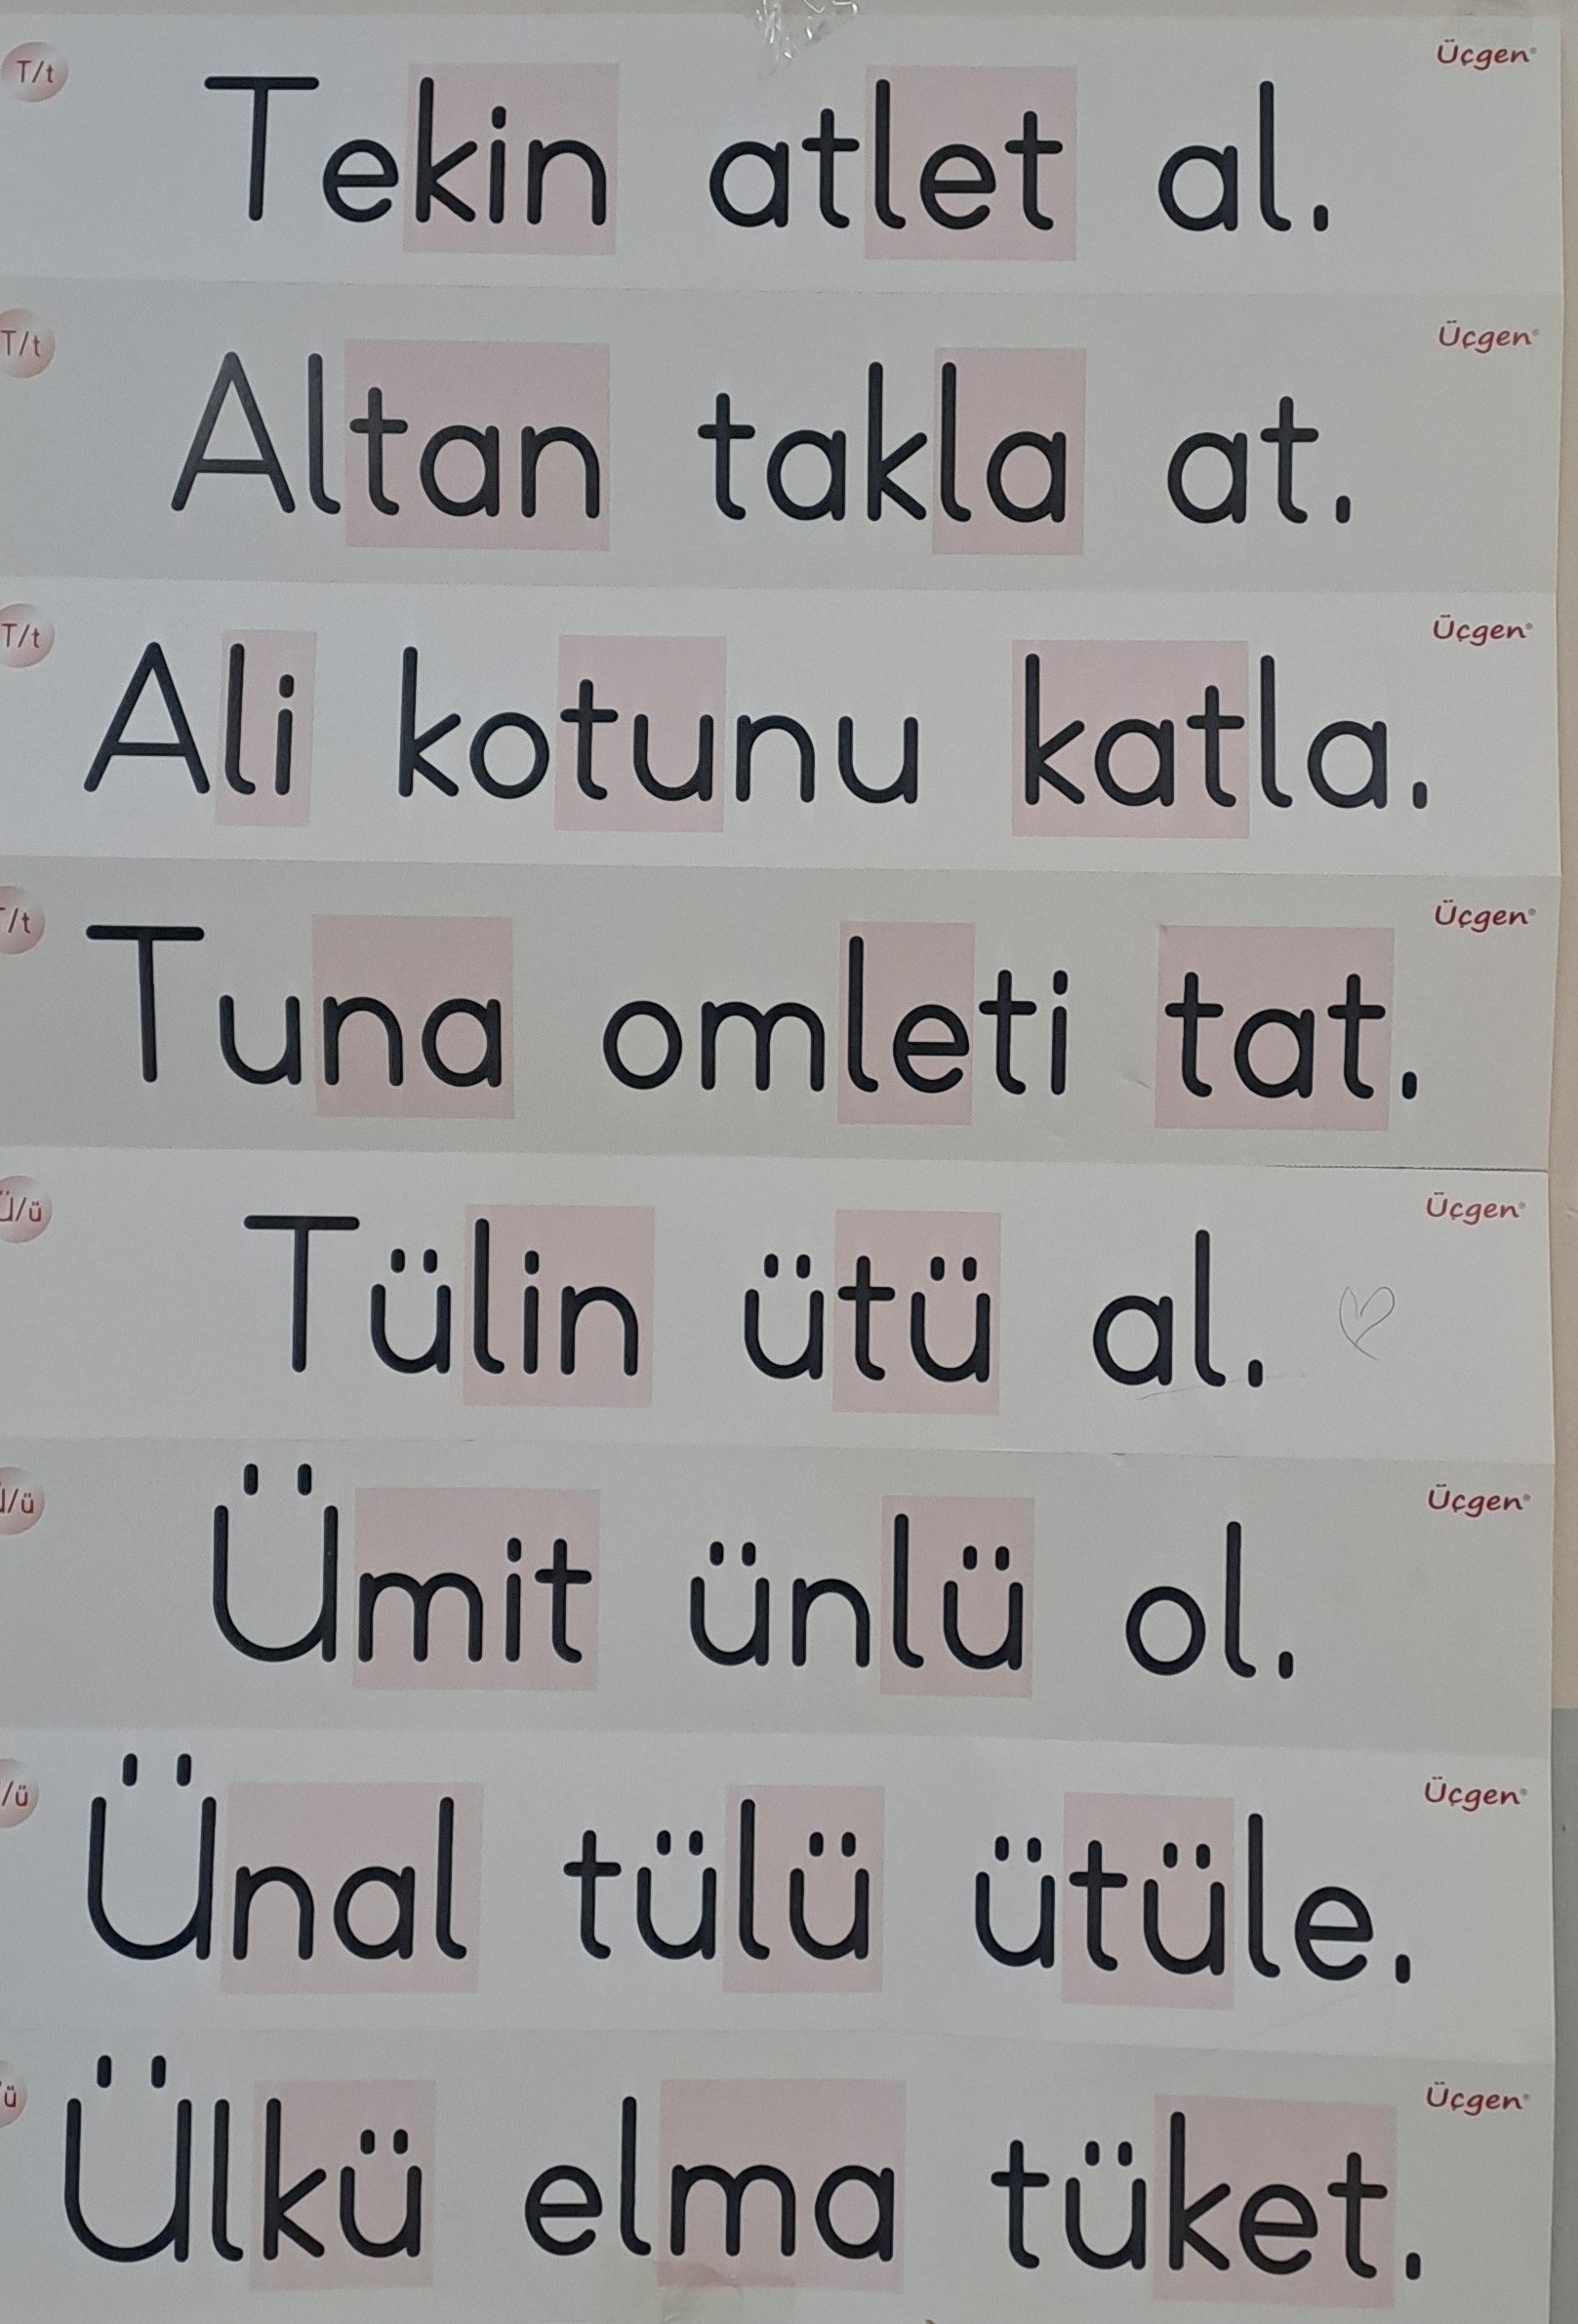 T/t Üçgen
Tekin atlet al.
T/t Üçgen
Altan takla at.
T/t Üçgen
Ali kotunu katla.
/t Üçgen
Tuna omleti tat.
Ü/ü Üçgen
Tülin ütü al.
/ü Üçgen
Ümit ünlü ol.
/ü Üçgen
Ünal tülü ütüle.
ü Üçgen
Ülkü elma tüket.